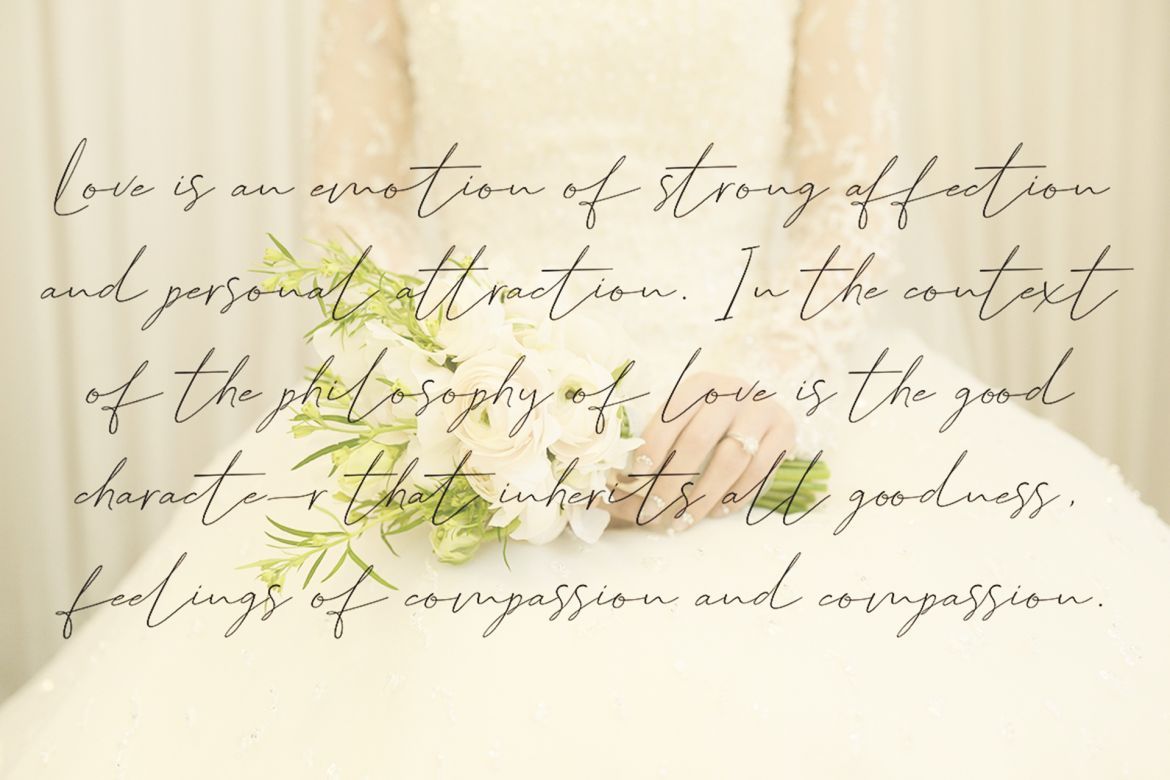 Love is an emotion of strong affection
and personal attraction. In the context
of the philosophy of love is the good
character that inherits all goodness,
feelings of compassion and compassion.